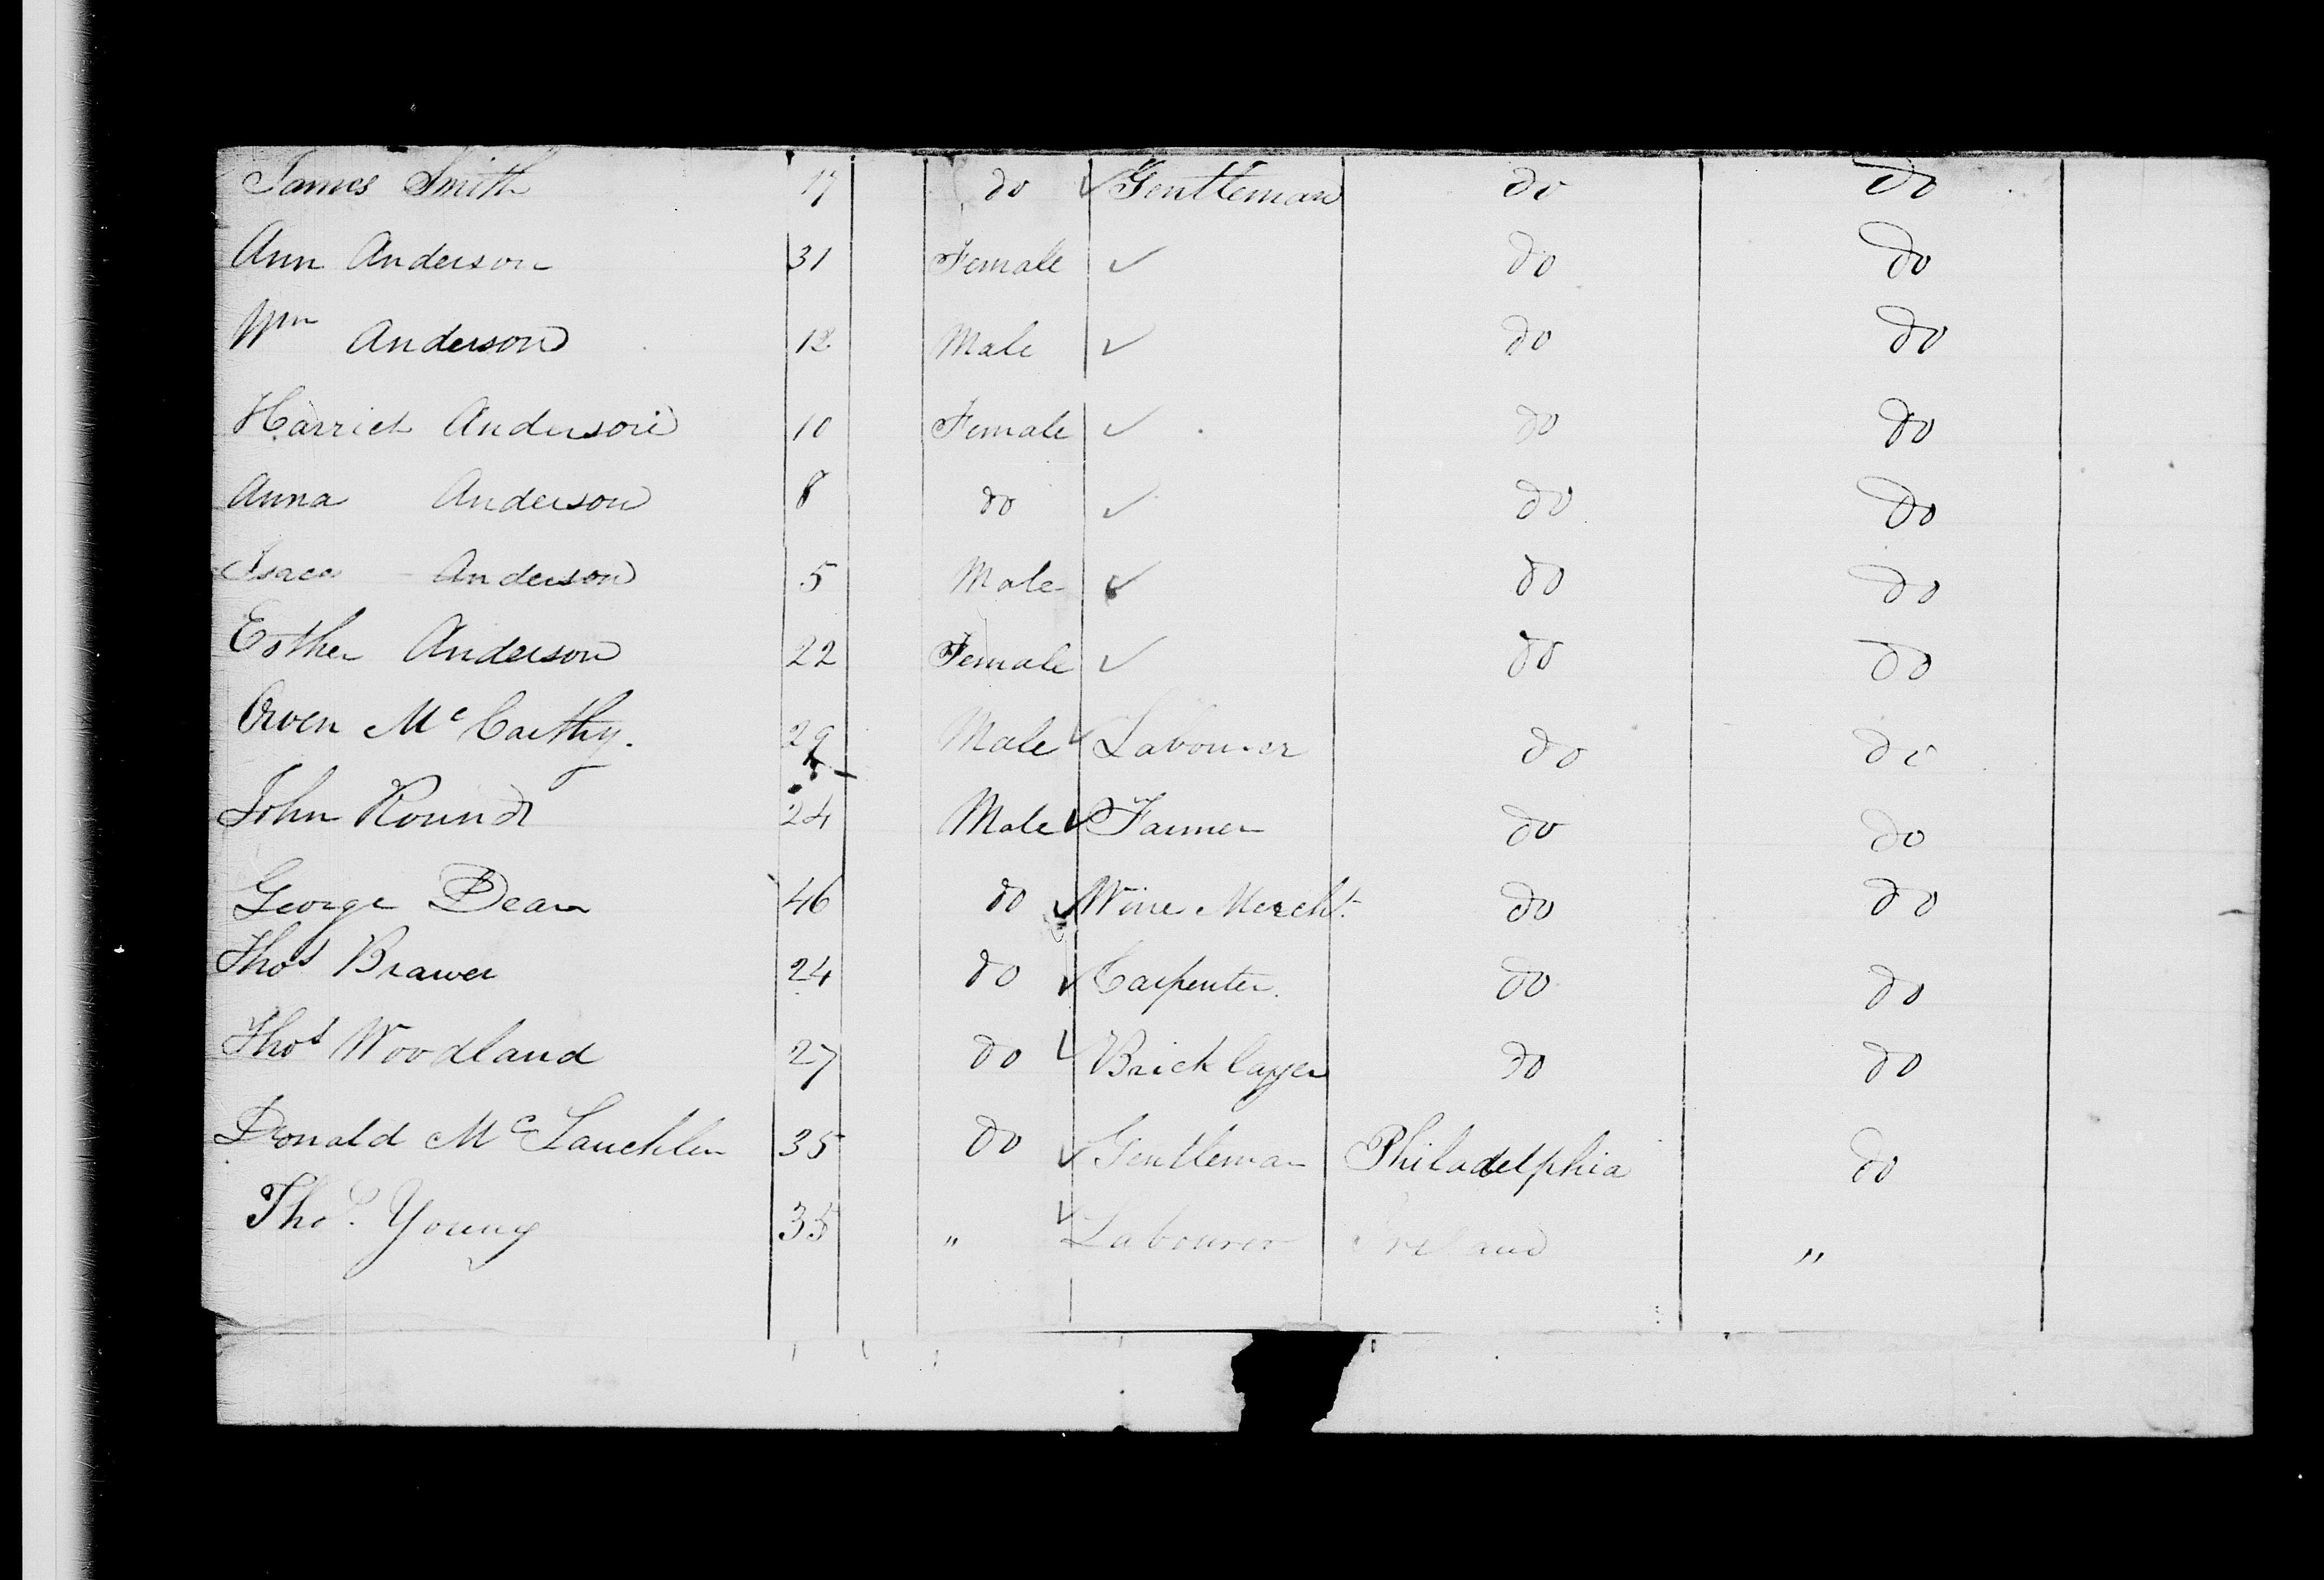 James Smith 17 do ✓ Gentleman do do
Ann Anderson 31 Female ✓ do do
Wm Anderson 12 Male ✓ do do
Harriet Anderson 10 Female ✓ do do
Anna Anderson 8 do ✓ do do
Isaac Anderson 5 Male ✓ do do
Esther Anderson 22 Female ✓ do do
Owen McCarthy. 29 Male ✓ Labourer do do
John Round 24 Male ✓ Farmer do do
George Dean 46 do ✓ Wine Mercht. do do
Thos Brawer 24 do ✓ Carpenter. do do
Thos Woodland 27 do ✓ Bricklayer do do
Donald McLauchlen 35 do ✓ Gentleman Philadelphia do
Thos. Young 35 " ✓ Labourer Ireland "